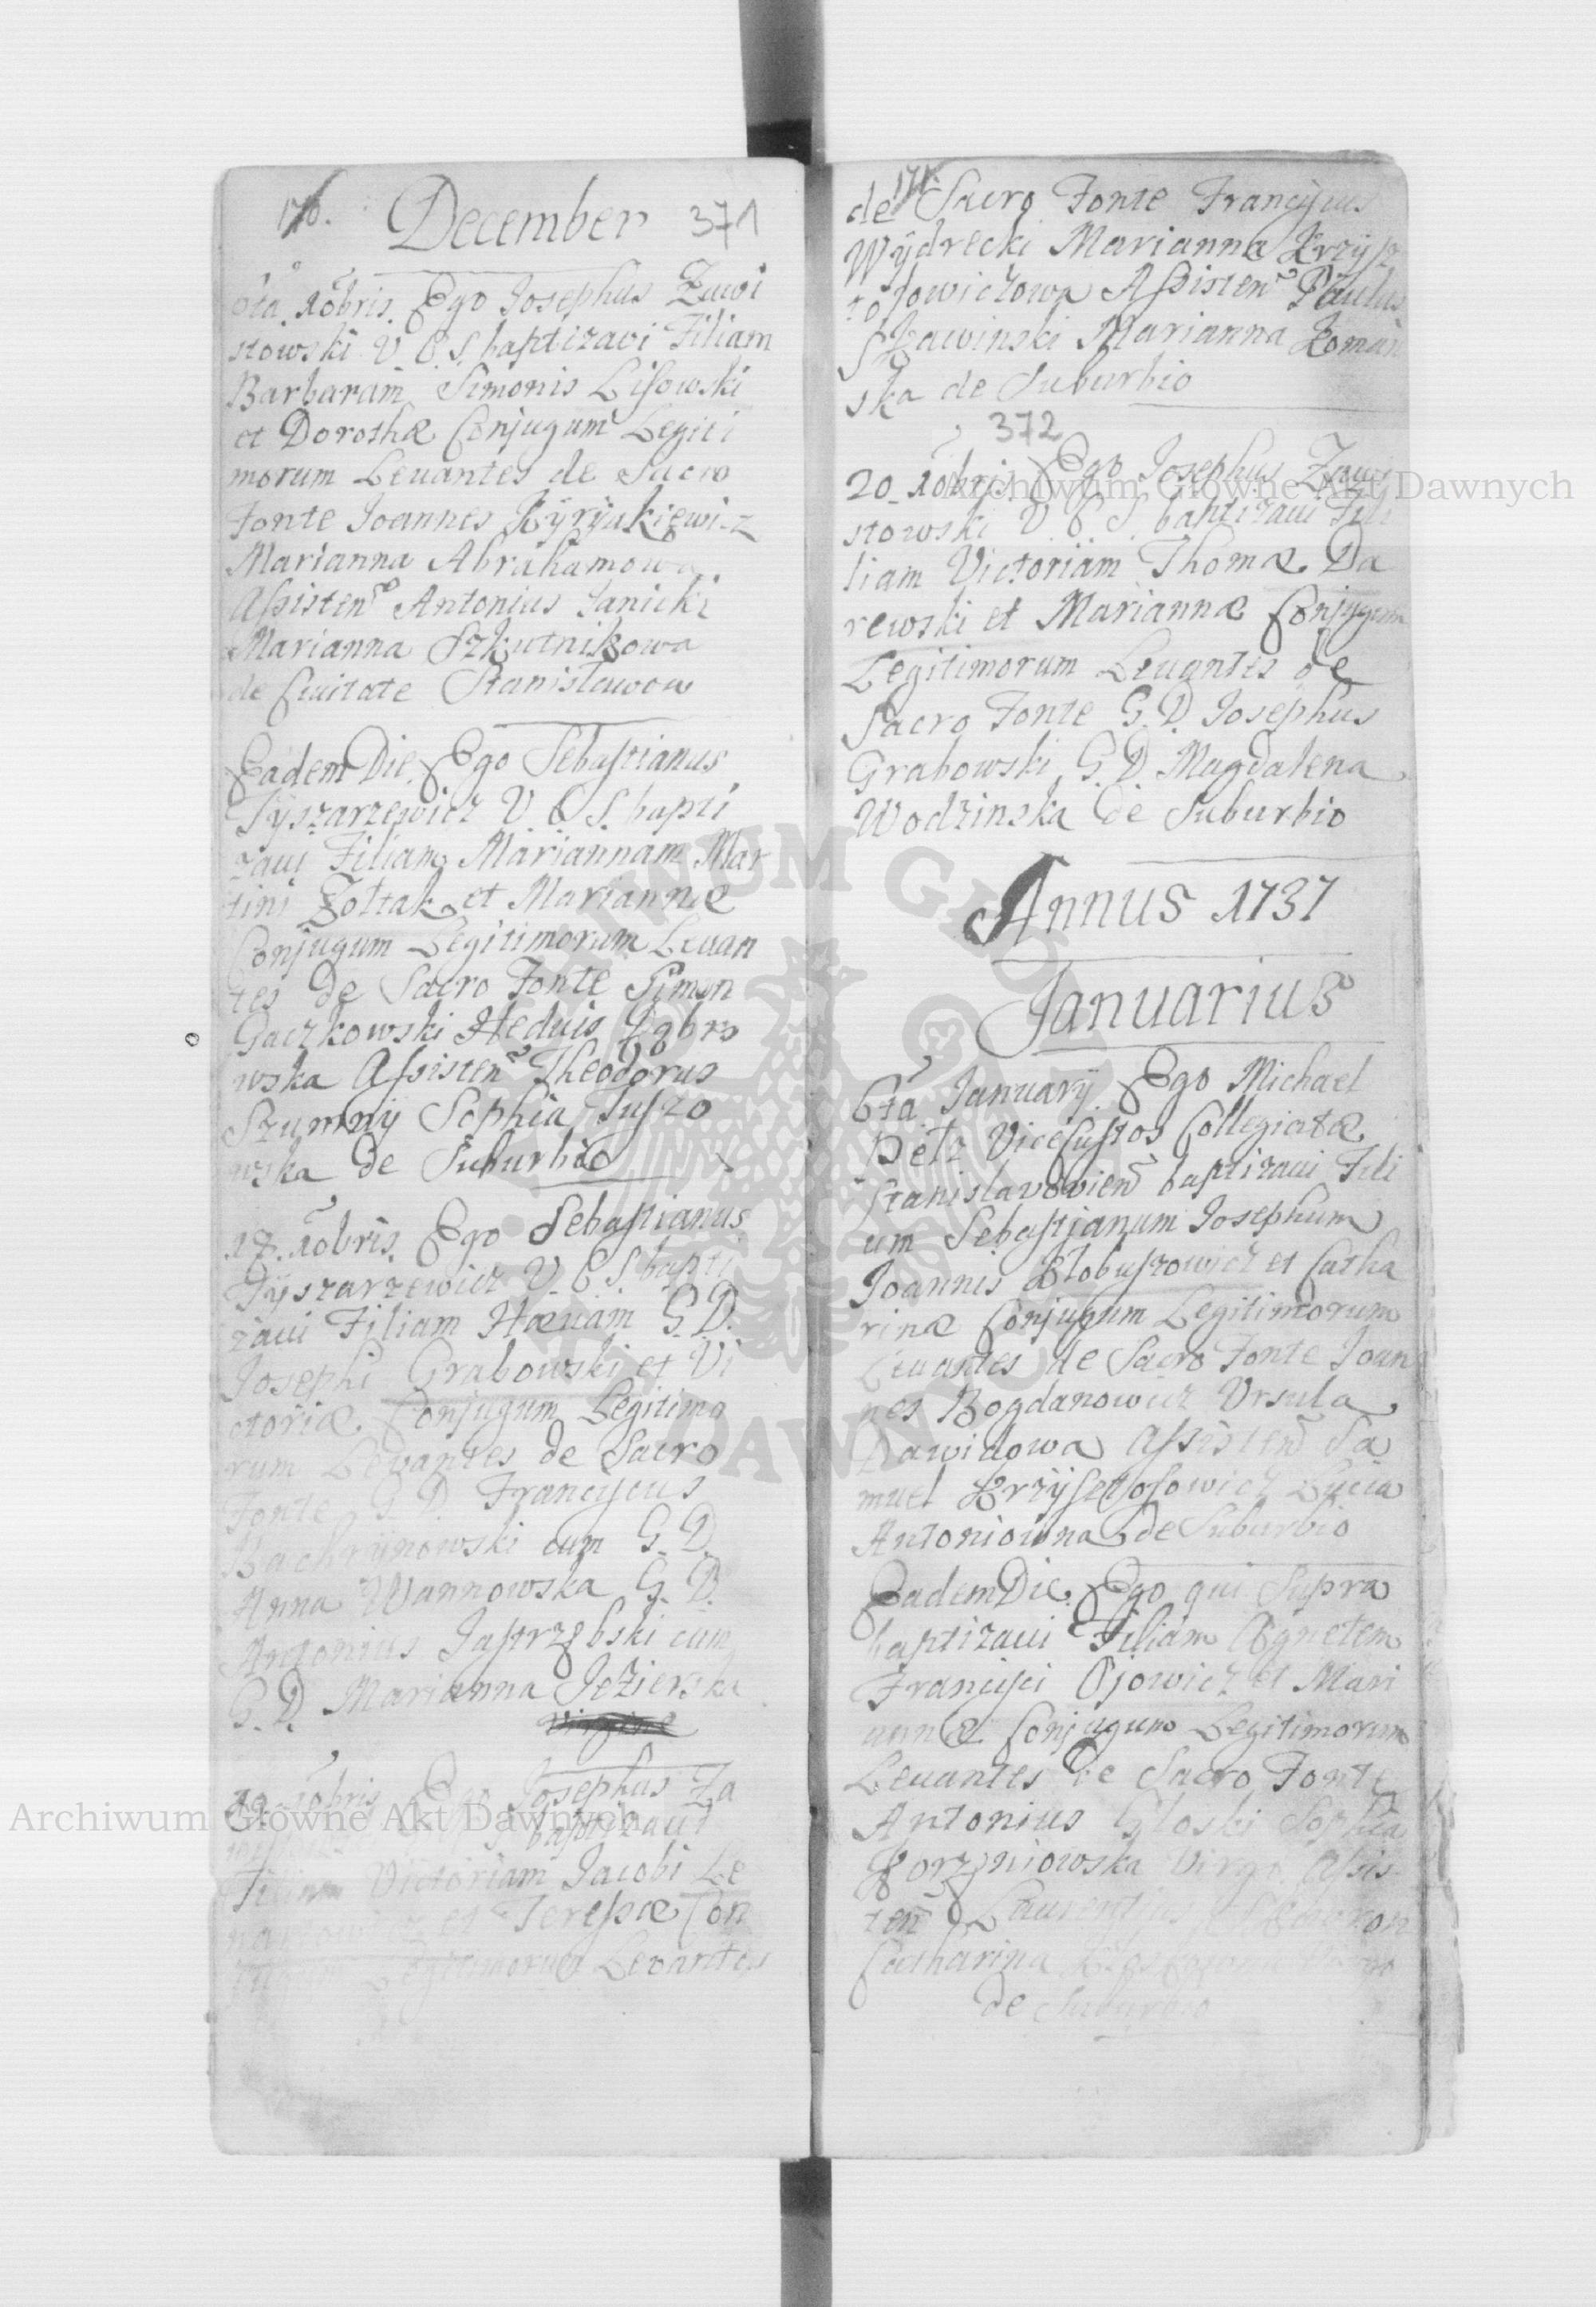 170.
December 371
8ta Xbris. Ego Josephus Zawi
stowski V. C. S. baptizavi Filiam
Barbaram Simonis Lisowski
et Dorothæ Conjugum Legiti
morum Levantes de Sacro
Fonte Joannes Kyryakiewicz
Marianna Abrahamowa
Assisten Antonius Janicki
Marianna Szkutnikowa
de Civitate Stanislawow
Eadem Die. Ego Sebastianus
Tyszarzewicz V C S. bapti
zavi Filiam Mariannam Mar
tini Zołtak et Mariannæ
Conjugum Legitimorum Levan
tes de Sacro Fonte Simon
Gaczkowski Heduis Dąbro
wska Assisten Theodorus
Szumny Sophia Juszo
wska de Suburbio
17. Xbris. Ego Sebastianus
Tyszarzewicz V. C. S. bapti
zavi Filiam Hævam G. D.
Josephi Grabowski et Vi
ctoriæ Conjugum Legitimo
rum Levantes de Sacro
Fonte G. D. Franciscus
Bachrynowski cum G. D.
Anna Wannowska G. D.
Antonius Jastrzębski cum
G. D. Marianna Jezierska
Xbris Ego Josephus Za
baptizavi
Filiam Victoriam Jacobi Le
et Teressæ Con
Legitimorum Levantes
171.
de Sacro Fonte Franciscus
Wydrecki Marianna Krzysz
tofowiczowa Assisten Paulus
Skawinski Marianna Roman
ska de Suburbio
372
20 Xbris Ego Josephus Zawi
stowski V. C. S. baptizavi Fili
liam Victoriam Thomæ Da
rewski et Mariannæ Conjugum
Legitimorum Levantes de
Sacro Fonte G. D. Josephus
Grabowski G. D. Magdalena
Wodzinska de Suburbio
Annus 1737
Januarius
6ta January. Ego Michael
Petz ViceCustos Collegiatæ
Stanislavovien baptizavi Fili
um Sebastianum Josephum
Joannis Kłobuszowicz et Catha
rinæ Conjugum Legitimorum
Levantes de Sacro Fonte Joan
nes Bogdanowicz Ursula
Dawidowa Assisten Sa
muel Krzysztofowicz Lucia
Antoniowna de Suburbio
Eadem Die. Ego qui Supra
baptizavi Filiam Agnetem
Francisci Ojowicz et Mari
annæ Conjugum Legitimorum
Levantes de Sacro Fonte
Antonius Głoski Sophia
Korzeniowska Virgo Assis
ten Laurentius
Catharina
de Suburbio
Archiwum Główne Akt Dawnych
Archiwum Główne Akt Dawnych
ARCHIWUM GŁÓWNE AKT DAWNYCH